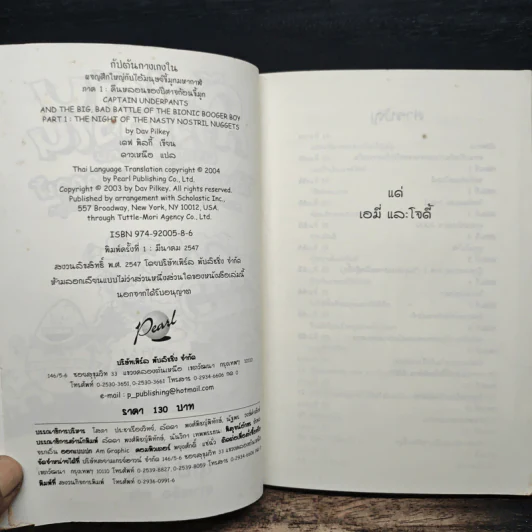 กัปตันกางเกงใน
ผจญศึกใหญ่กับไอ้มนุษย์ขี้มูกมหากาฬ
ภาค 1 : คืนหลอนของปีศาจก้อนขี้มูก
CAPTAIN UNDERPANTS
AND THE BIG, BAD BATTLE OF THE BIONIC BOOGER BOY
PART 1 : THE NIGHT OF THE NASTY NOSTRIL NUGGETS
by Dav Pilkey
เดฟ พิลกี้ เขียน
ดาวเหนือ แปล
Thai Language Translation copyright © 2004
by Pearl Publishing Co., Ltd.
Copyright © 2003 by Dav Pilkey. All rights reserved.
Published by arrangement with Scholastic Inc.,
557 Broadway, New York, NY 10012, USA.
through Tuttle-Mori Agency Co., Ltd.
ISBN 974-92005-8-6
พิมพ์ครั้งที่ 1 : มีนาคม 2547
สงวนลิขสิทธิ์ พ.ศ. 2547 โดยบริษัทเพิร์ล พับลิชชิ่ง จำกัด
ห้ามลอกเลียนแบบไม่ว่าส่วนหนึ่งส่วนใดของหนังสือเล่มนี้
นอกจากได้รับอนุญาต
Pearl
บริษัทเพิร์ล พับลิชชิ่ง จำกัด
146/5-6 ซอยสุขุมวิท 33 แขวงคลองตันเหนือ เขตวัฒนา กรุงเทพฯ
โทรศัพท์ 0-2530-3651, 0-2530-3661 โทรสาร 0-2934-6606
e-mail : p_publishing@hotmail.com
ราคา 130 บาท
บรรณาธิการบริหาร
บรรณาธิการสำนักพิมพ์
ออกแบบปก Am Graphic คอมพิวเตอร์
จัดจำหน่ายโดย จำกัด 146/5-6 ซอยสุขุมวิท 33
เขตวัฒนา กรุงเทพฯ 10110 โทรศัพท์ โทรสาร 0-2934-6606
พิมพ์ที่ โทรศัพท์ 0-2936-0991-6
แด่
เอมี่ และโจดี้